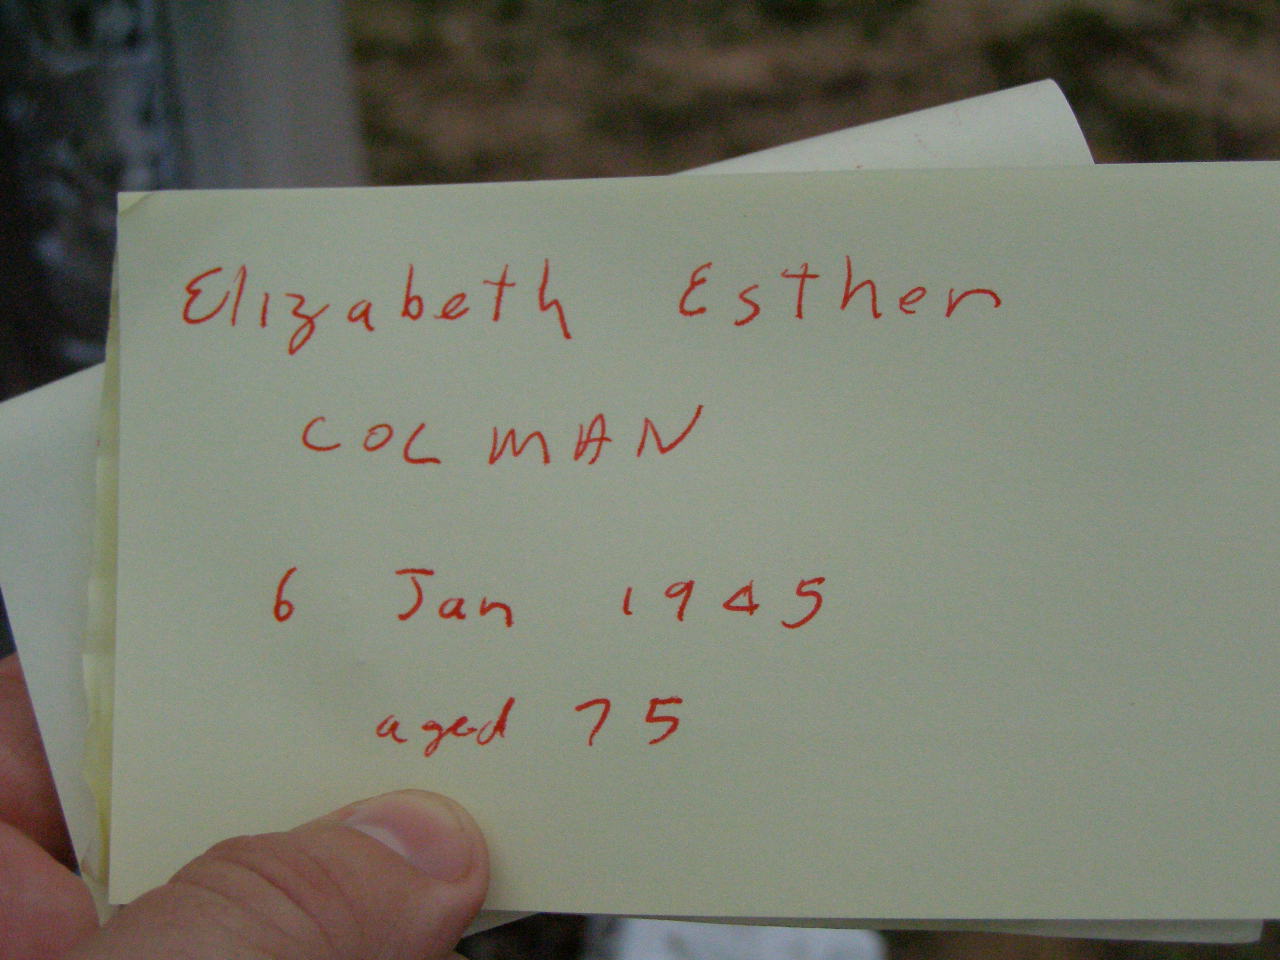 Elizabeth Esther
COLMAN
6 Jan 1945
aged 75